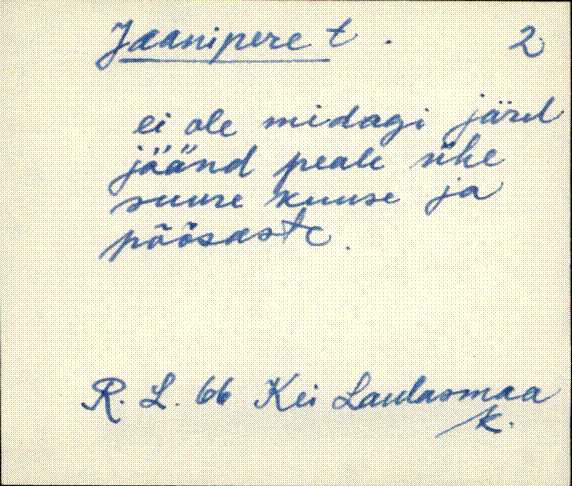 Jaanipere t. 2
ei ole midagi järel
jäänd peale ühe
suure kuuse ja
põõsaste.
R. L. 66 Kei Laulasmaa
k.